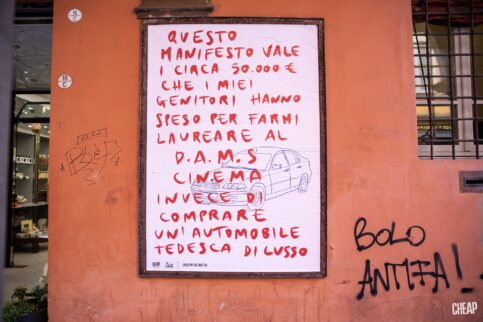 QUESTO
MANIFESTO VALE
I CIRCA 50.000 €
CHE I MIEI
GENITORI HANNO
SPESO PER FARMI
LAUREARE AL
D.A.M.S
CINEMA
INVECE DI
COMPRARE
UN'AUTOMOBILE
TEDESCA DI LUSSO
BOLO
ANTIFA!
CHEAP